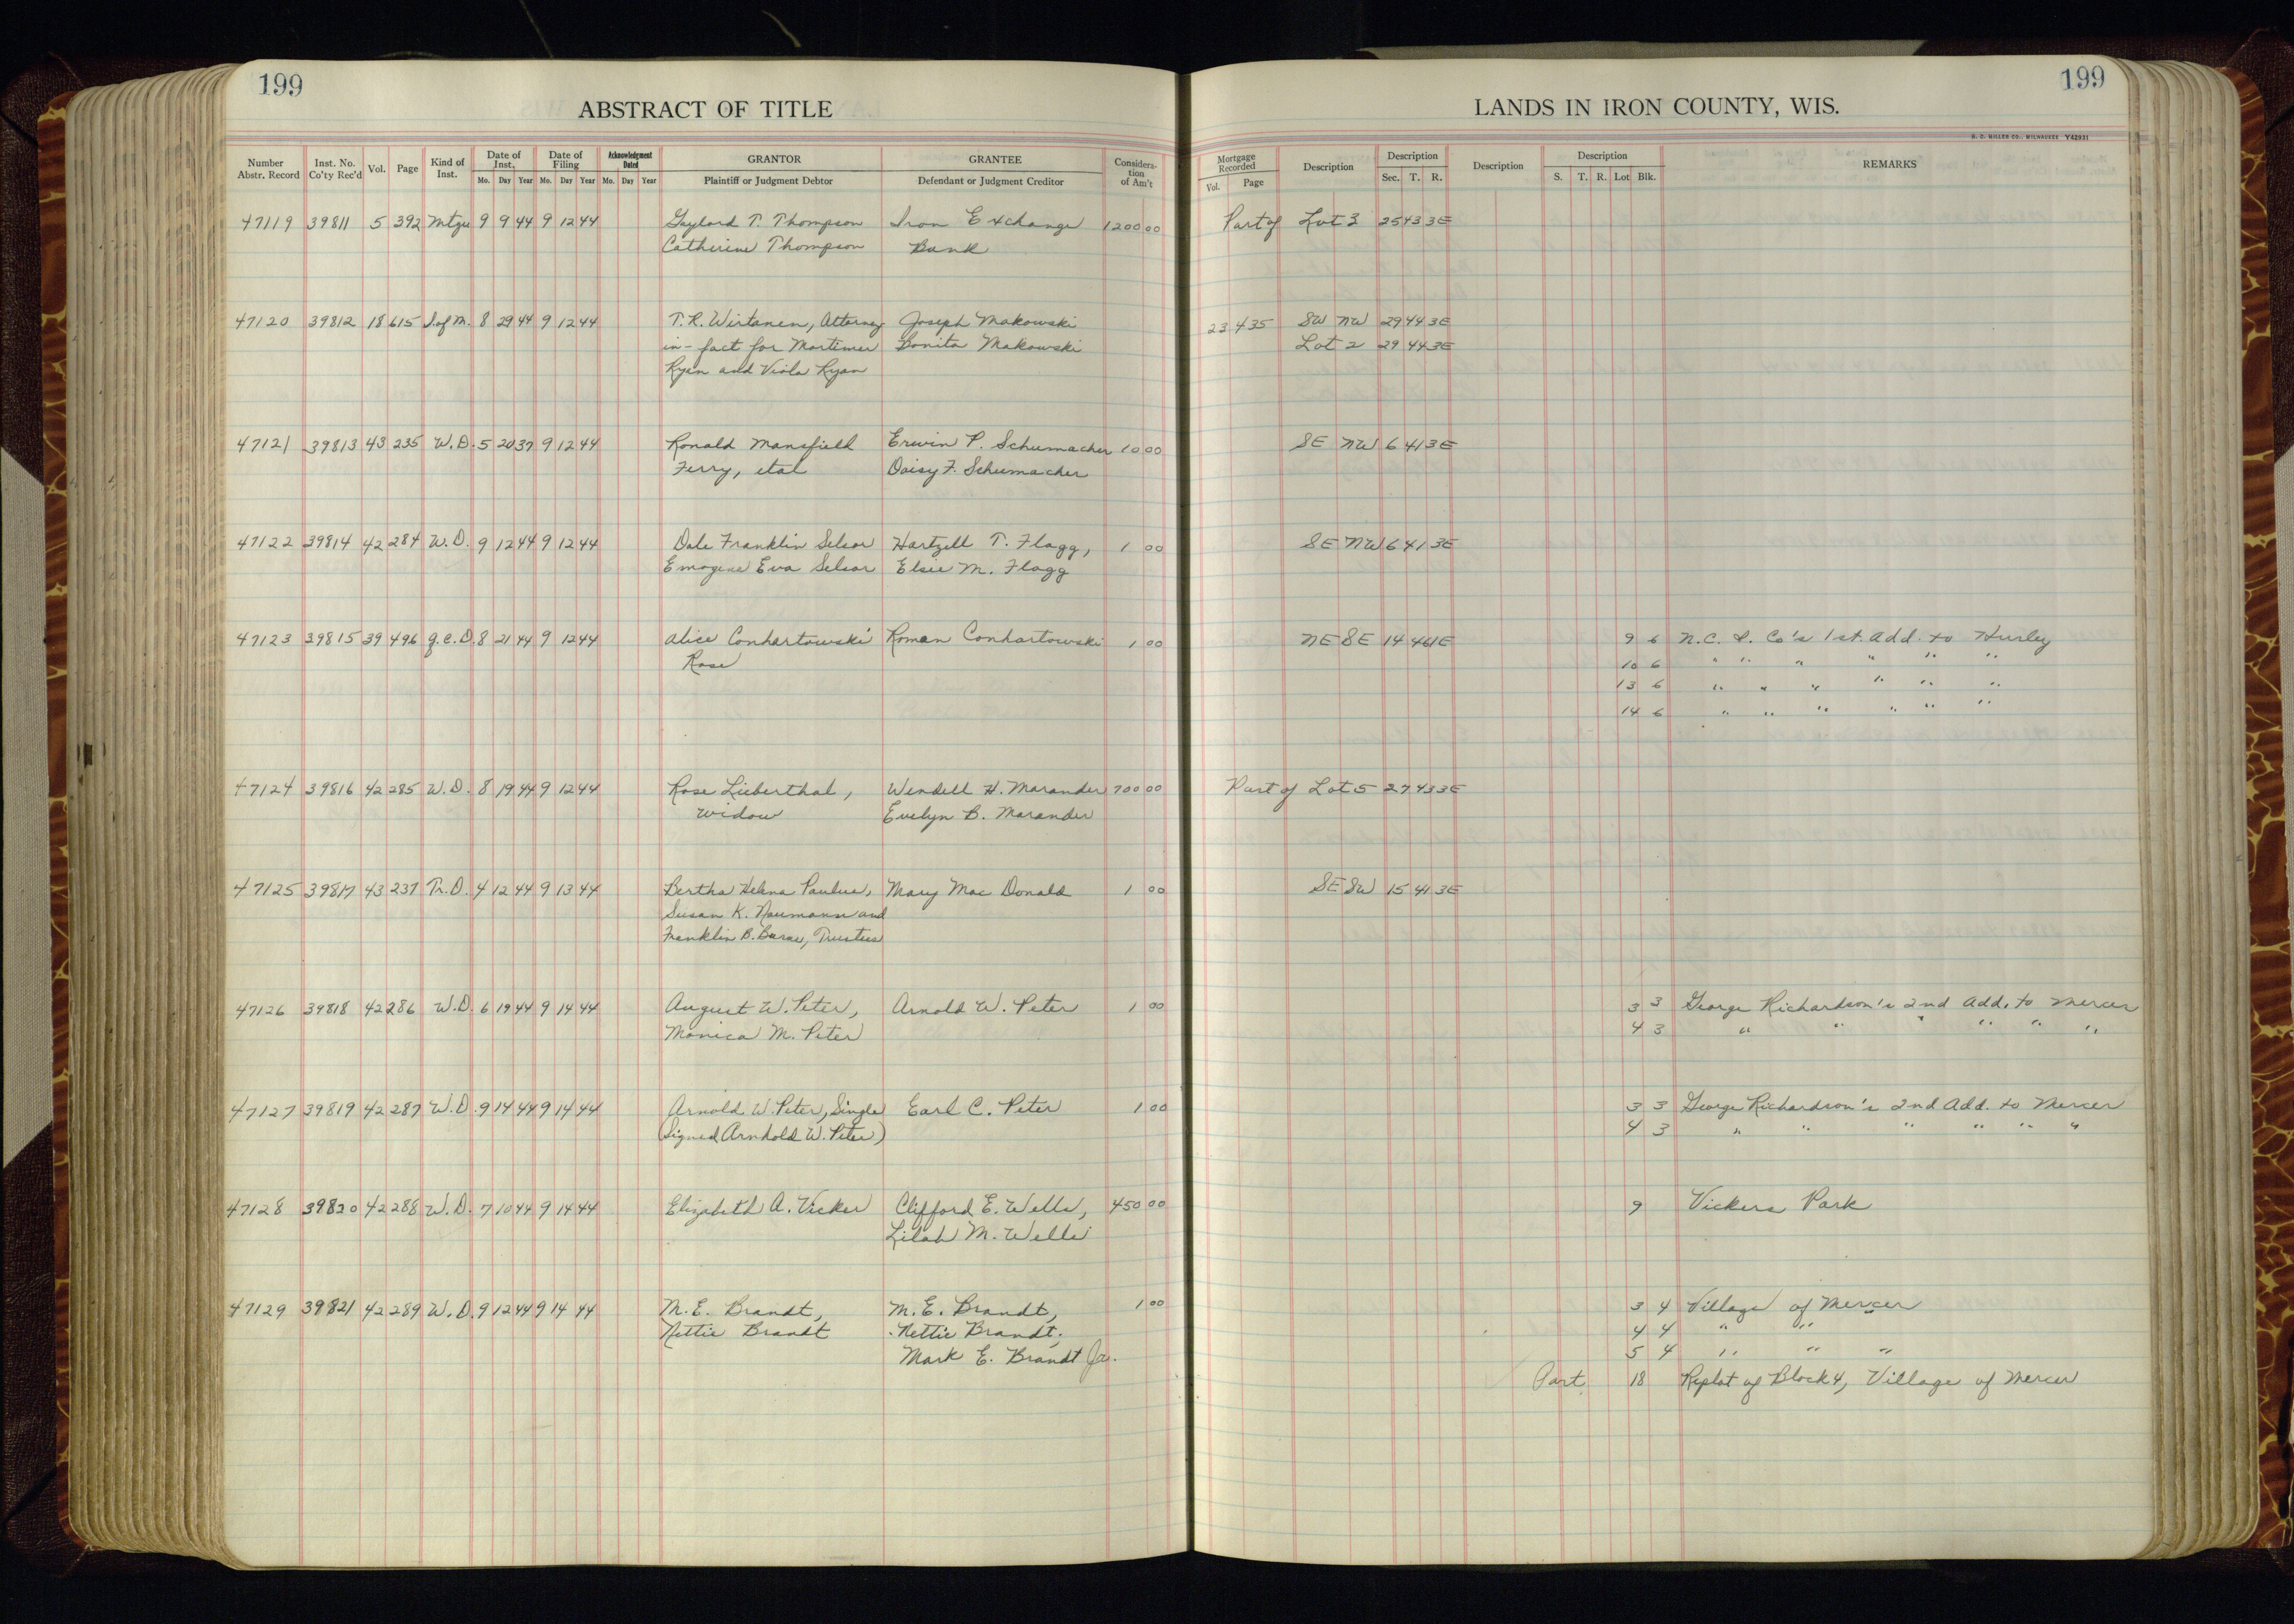 199
199
ABSTRACT OF TITLE
LANDS IN IRON COUNTY, WIS.
H. C. MILLER CO., MILWAUKEE Y42931
Number Abstr. Record Inst. No. Co'ty Rec'd Vol. Page Kind of Inst. Date of Inst. Mo. Day Year Date of Filing Mo. Day Year Acknowledgment Dated Mo. Day Year GRANTOR Plaintiff or Judgment Debtor GRANTEE Defendant or Judgment Creditor Considera-tion of Am't Mortgage Recorded Vol. Page Description Description Sec. T. R. Description Description S. T. R. Lot Blk. REMARKS
47119 39811 5 392 Mtge 9 9 44 9 12 44 Gaylord T. Thompson Iron Exchange 1200 00 Part of Lot 3 25 43 3E
Catherine Thompson Bank
47120 39812 18 615 S. of M. 8 29 44 9 12 44 T. R. Wirtanen, Attorney Joseph Makowski 23 435 SW NW 29 44 3E
in-fact for Mortimer Bonita Makowski Lot 2 29 44 3E
Ryan and Viola Ryan
47121 39813 43 235 W.D. 5 20 37 9 12 44 Ronald Mansfield Erwin P. Schumacher 10 00 SE NW 6 41 3E
Ferry, etal Daisy F. Schumacher
47122 39814 42 284 W.D. 9 12 44 9 12 44 Dale Franklin Selsor Hartzell T. Flagg, 1 00 SE NW 6 41 3E
Emogene Eva Selsor Elsie M. Flagg
47123 39815 39 496 Q.C.D. 8 21 44 9 12 44 Alice Conhartowski Roman Conhartowski 1 00 NE SE 14 46 1E 9 6 N.C. I. Co's 1st. Add. to Hurley
Rose 10 6 " " " " " "
13 6 " " " " " "
14 6 " " " " " "
47124 39816 42 285 W.D. 8 19 44 9 12 44 Rose Lieberthal, Wendell H. Marander 700 00 Part of Lot 5 27 43 3E
widow Evelyn B. Marander
47125 39817 43 237 Tr.D. 4 12 44 9 13 44 Bertha Helena Paulus, Mary Mac Donald 1 00 SE SW 15 41 3E
Susan K. Naumann and
Franklin B. , Trustees
47126 39818 42 286 W.D. 6 19 44 9 14 44 August W. Peter, Arnold W. Peter 1 00 3 3 George Richardson's 2nd Add. to Mercer
Monica M. Peter 4 3 " " " " " "
47127 39819 42 287 W.D. 9 14 44 9 14 44 Arnold W. Peter, Single Earl C. Peter 1 00 3 3 George Richardson's 2nd Add. to Mercer
(Signed Arnhold W. Peter) 4 3 " " " " " "
47128 39820 42 288 W.D. 7 10 44 9 14 44 Elizabeth A. Vicker Clifford E. Wells, 450 00 9 Vickers Park
Lilah M. Wells
47129 39821 42 289 W.D. 9 12 44 9 14 44 M. E. Brandt, M. E. Brandt, 1 00 3 4 Village of Mercer
Nettie Brandt Nettie Brandt, 4 4 " "
Mark E. Brandt Jr. 5 4 " " "
Part 18 Replat of Block 4, Village of Mercer